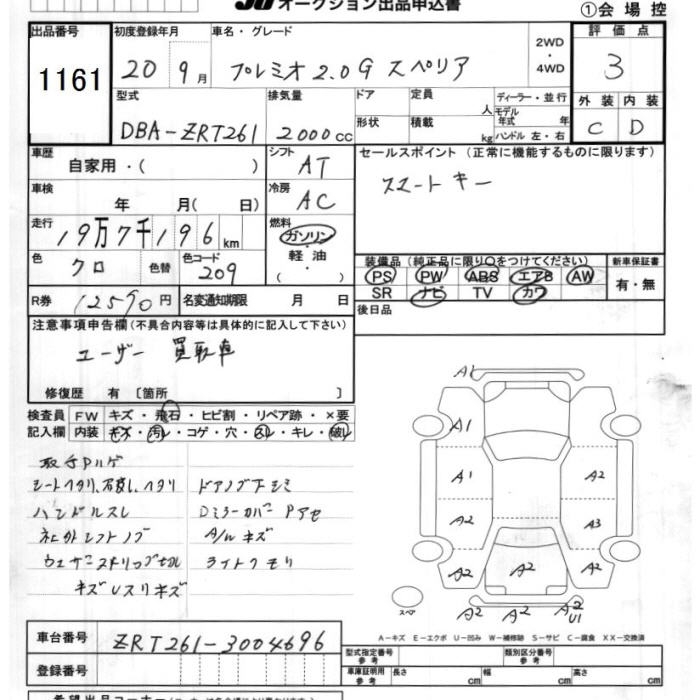 オークション出品申込書
①会場控
出品番号 初度登録年月 車名・グレード 2WD・4WD 評価点
1161 20 9月 プレミオ 2.0G スペリア 3
型式 排気量 ドア 定員 人 ディーラー・並行 外装 内装
DBA-ZRT261 2000cc 形状 積載 kg モデル年式 年 ハンドル 左・右 C D
車歴 自家用・( ) シフト AT セールスポイント (正常に機能するものに限ります)
車検 年 月( 日) 冷房 AC スマートキー
走行 19万7千196km 燃料 ガソリン・軽油・( )
色 クロ 色替 色コード 209 装備品(純正品に限り○をつけてください) 新車保証書
PS PW ABS エアB AW 有・無
SR ナビ TV カワ
R券 12590円 名変通知期限 月 日 後日品
注意事項申告欄(不具合内容等は具体的に記入して下さい)
ユーザー 買取車
修復歴 有 〔箇所 〕
検査員 FW キズ・飛石・ヒビ割・リペア跡・×要
記入欄 内装 キズ・汚レ・コゲ・穴・スレ・キレ・破レ
シートヘタリ、 ヘタリ ドアノブ下シミ
ハンドルスレ Dミラーカバー Pアセ
シフトノブ A/Wキズ
ライトクモリ
キズUスリキズ
A1
A1
A1 A2
A2 A3
A2 A2 A2
A2 A2 A2 U1
スペア
A-キズ E-エクボ U-凹み W-補修跡 S-サビ C-腐食 XX-交換済
車台番号 ZRT261-3004696
登録番号
型式指定番号 参考 類別区分番号 参考
車庫証明用 参考 長さ cm 幅 cm 高さ cm